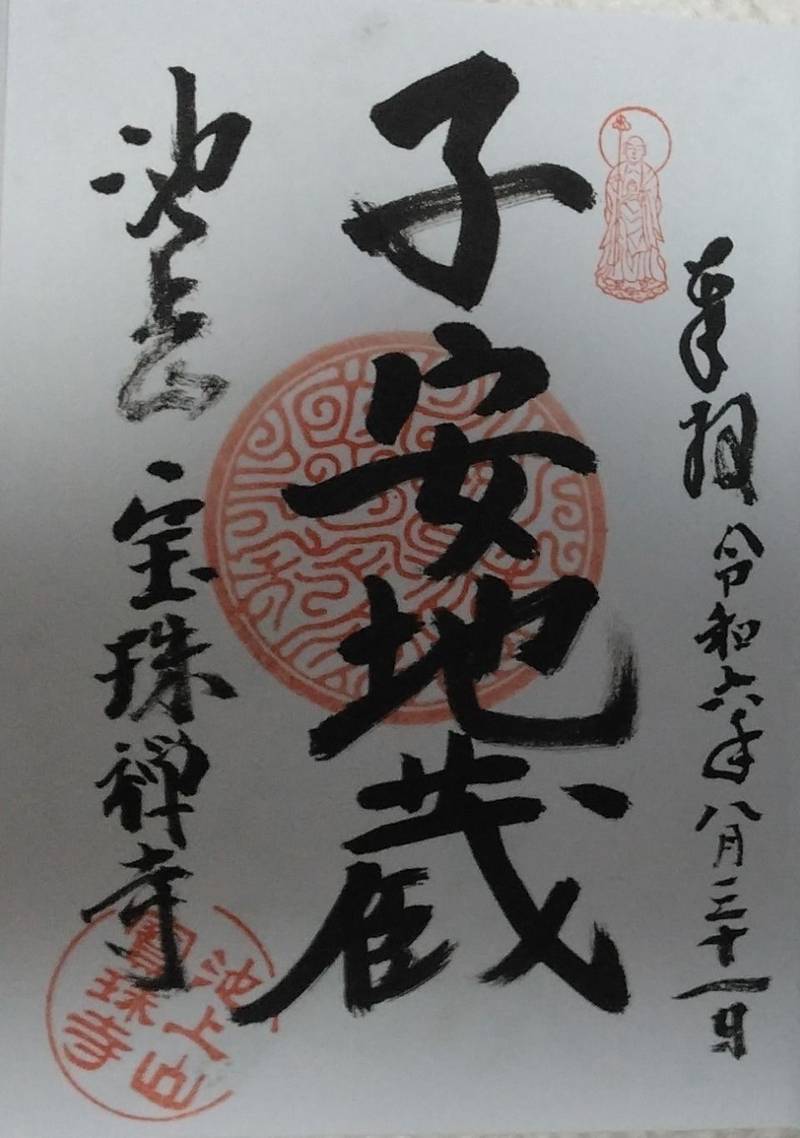 奉拝
令和六年八月三十一日
子安地蔵
池上山
宝珠禅寺
池上山
寶珠寺